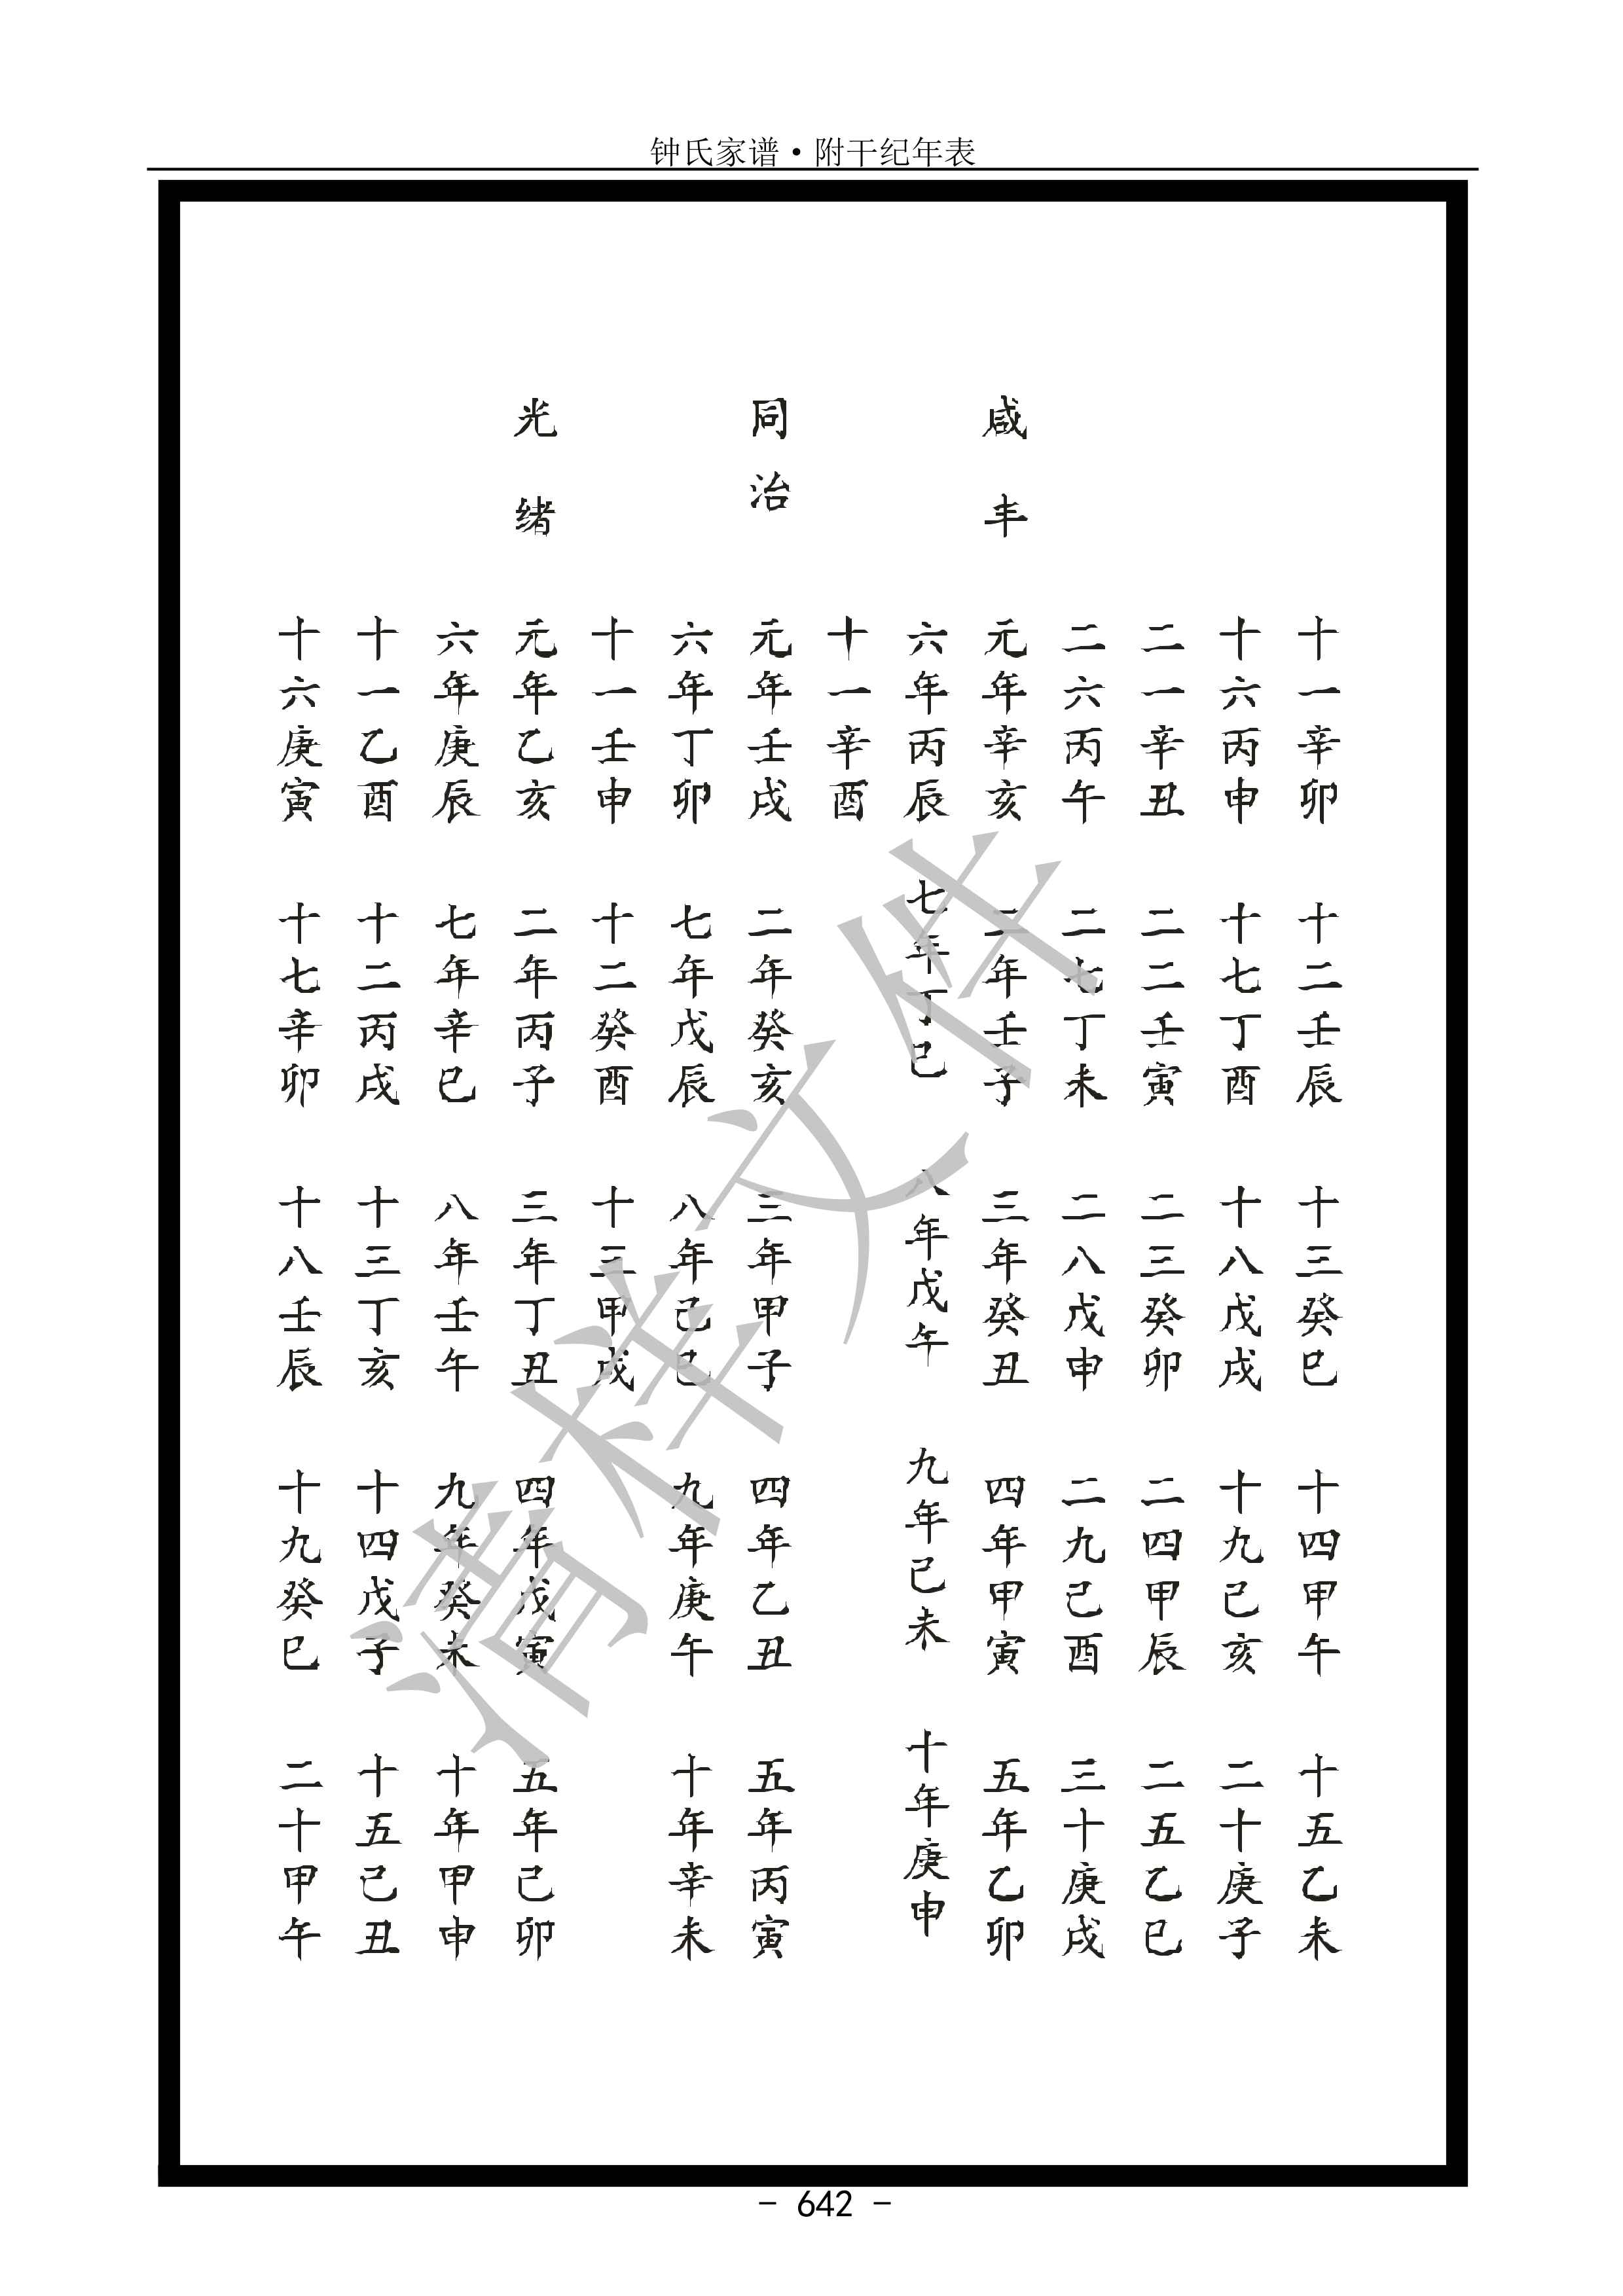 钟氏家谱·附干纪年表
十一辛卯 十二壬辰 十三癸巳 十四甲午 十五乙未
十六丙申 十七丁酉 十八戊戌 十九己亥 二十庚子
二一辛丑 二二壬寅 二三癸卯 二四甲辰 二五乙巳
二六丙午 二七丁未 二八戊申 二九己酉 三十庚戌
咸丰 元年辛亥 二年壬子 三年癸丑 四年甲寅 五年乙卯
六年丙辰 七年丁巳 八年戊午 九年己未 十年庚申
十一辛酉
同治 元年壬戌 二年癸亥 三年甲子 四年乙丑 五年丙寅
六年丁卯 七年戊辰 八年己巳 九年庚午 十年辛未
十一壬申 十二癸酉 十三甲戌
光绪 元年乙亥 二年丙子 三年丁丑 四年戊寅 五年己卯
六年庚辰 七年辛巳 八年壬午 九年癸未 十年甲申
十一乙酉 十二丙戌 十三丁亥 十四戊子 十五己丑
十六庚寅 十七辛卯 十八壬辰 十九癸巳 二十甲午
清样文件
- 642 -